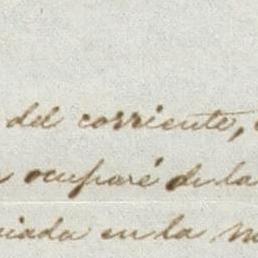 del corriente,
ocuparé de la
en la